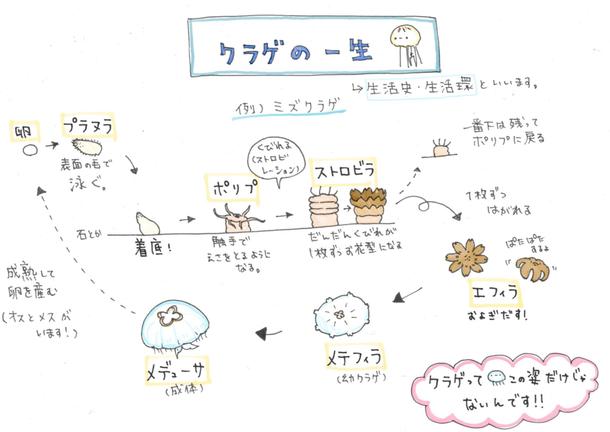 クラゲの一生
↳生活史・生活環といいます。
例) ミズクラゲ
卵
プラヌラ
表面の毛で
泳ぐ。
石とか
着底!
ポリプ
触手で
えさをとるように
なる。
くびれる
(ストロビ
レーション)
ストロビラ
だんだんくびれが
1枚ずつお花型になる
一番下は残って
ポリプに戻る
1枚ずつ
はがれる
ぱたぱた
するよ
エフィラ
およぎだす!
メテフィラ
(幼クラゲ)
メデューサ
(成体)
成熟して
卵を産む
(オスとメスが
います!)
クラゲって この姿だけじゃ
ないんです!!